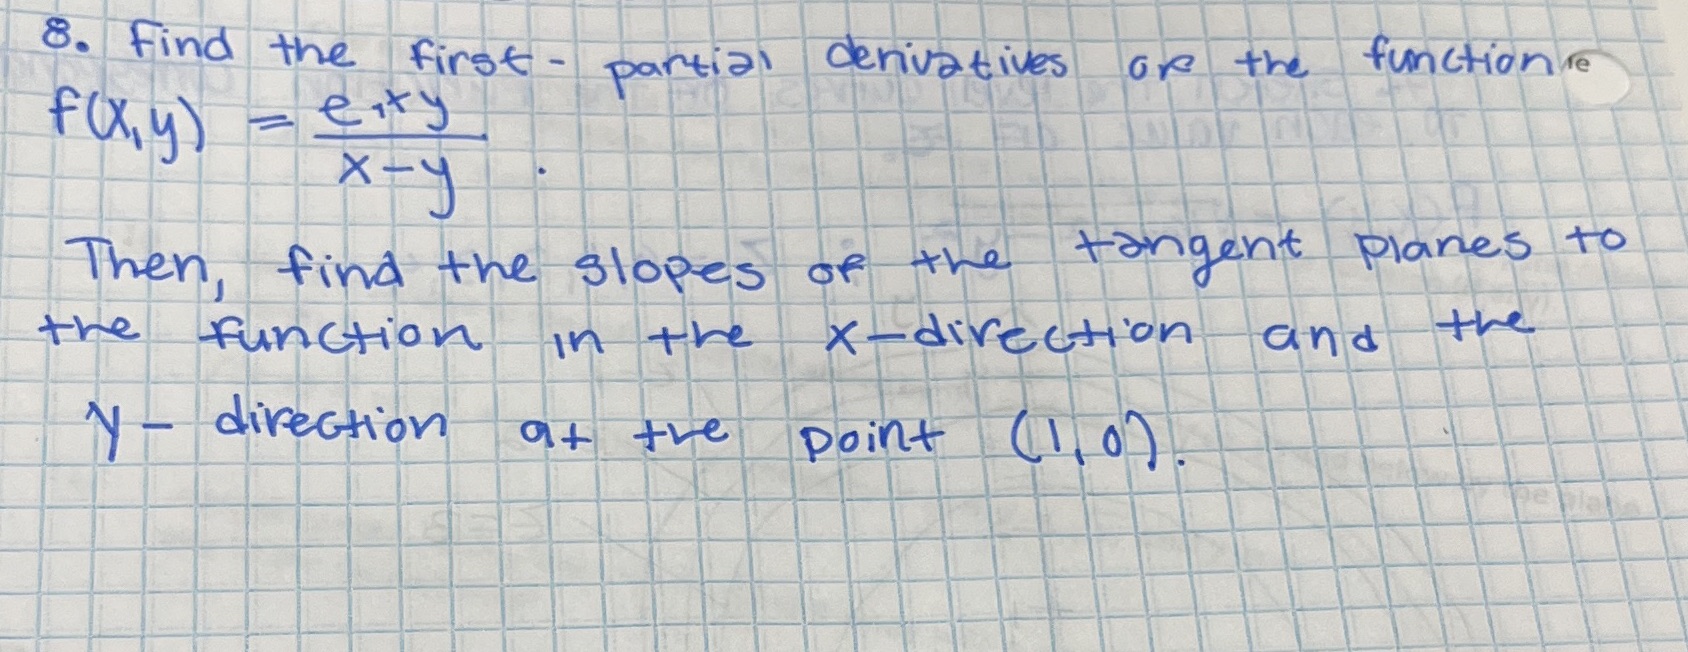 8. Find the first-partial derivatives of the function
f(x,y) = e^xy / x-y .
Then, find the slopes of the tangent planes to
the function in the x-direction and the
y-direction at the point (1,0).